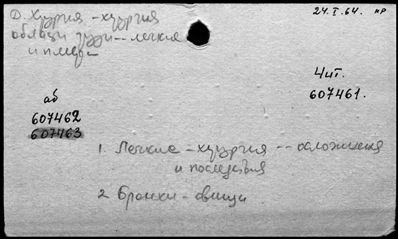 Д. Хирургия - хирургия
области груди -- легкие
и плевра
24.I.64. кр
Чит.
607461.
аб
607462
607463
1. Легкие - хирургия -- осложнения
и последствия
2. Бронхи - свищи